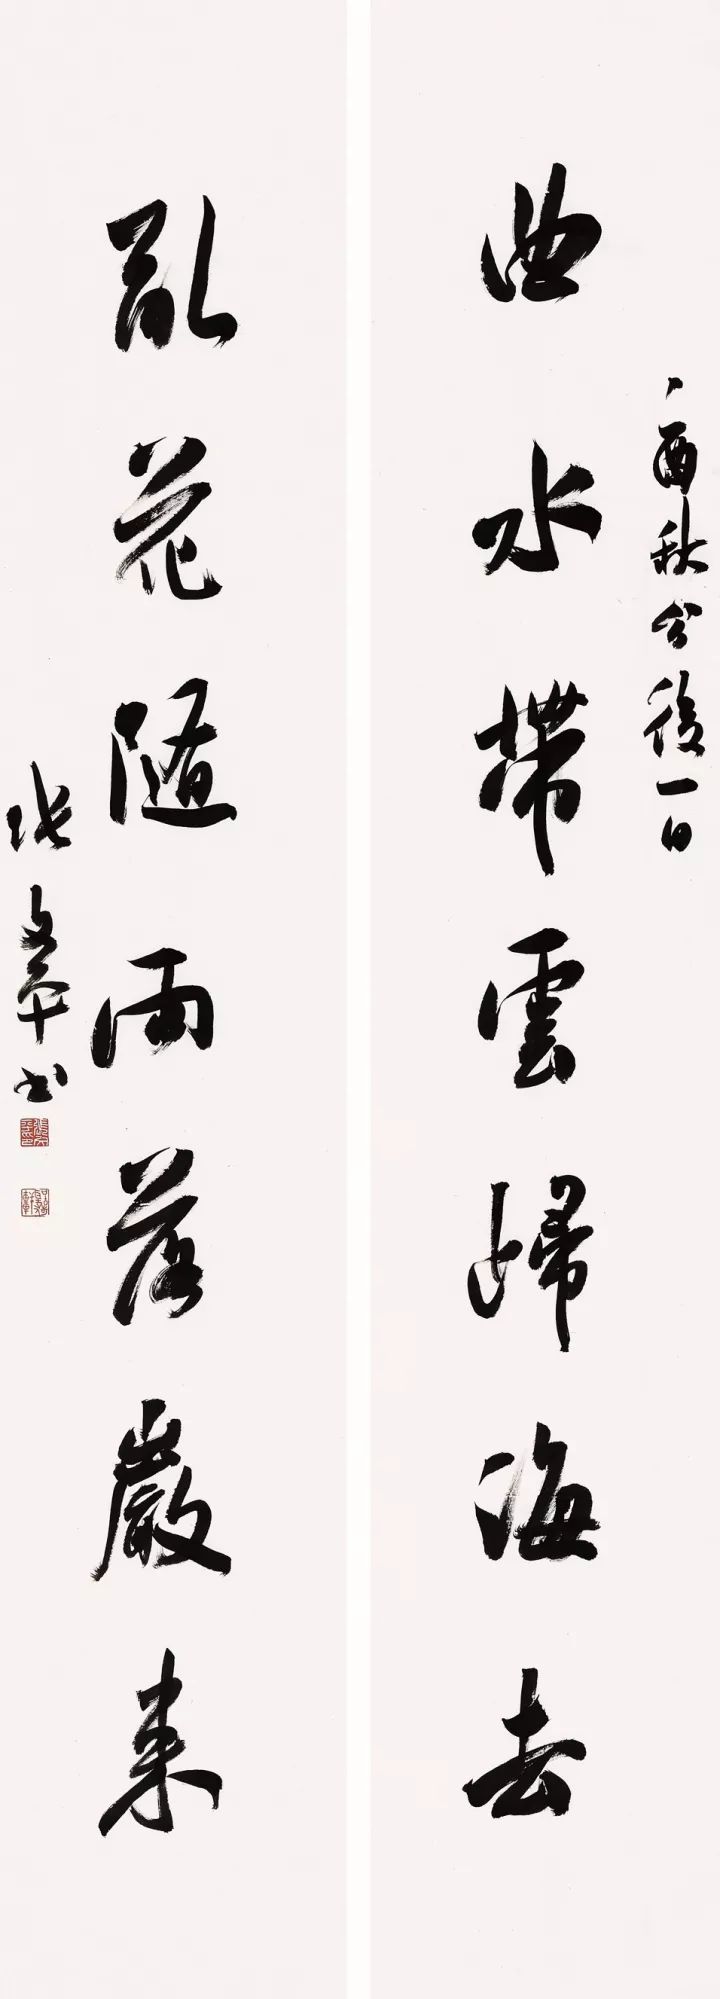 酉秋分後一日
曲水帶雲歸海去
亂花隨雨落巖來
張文平書